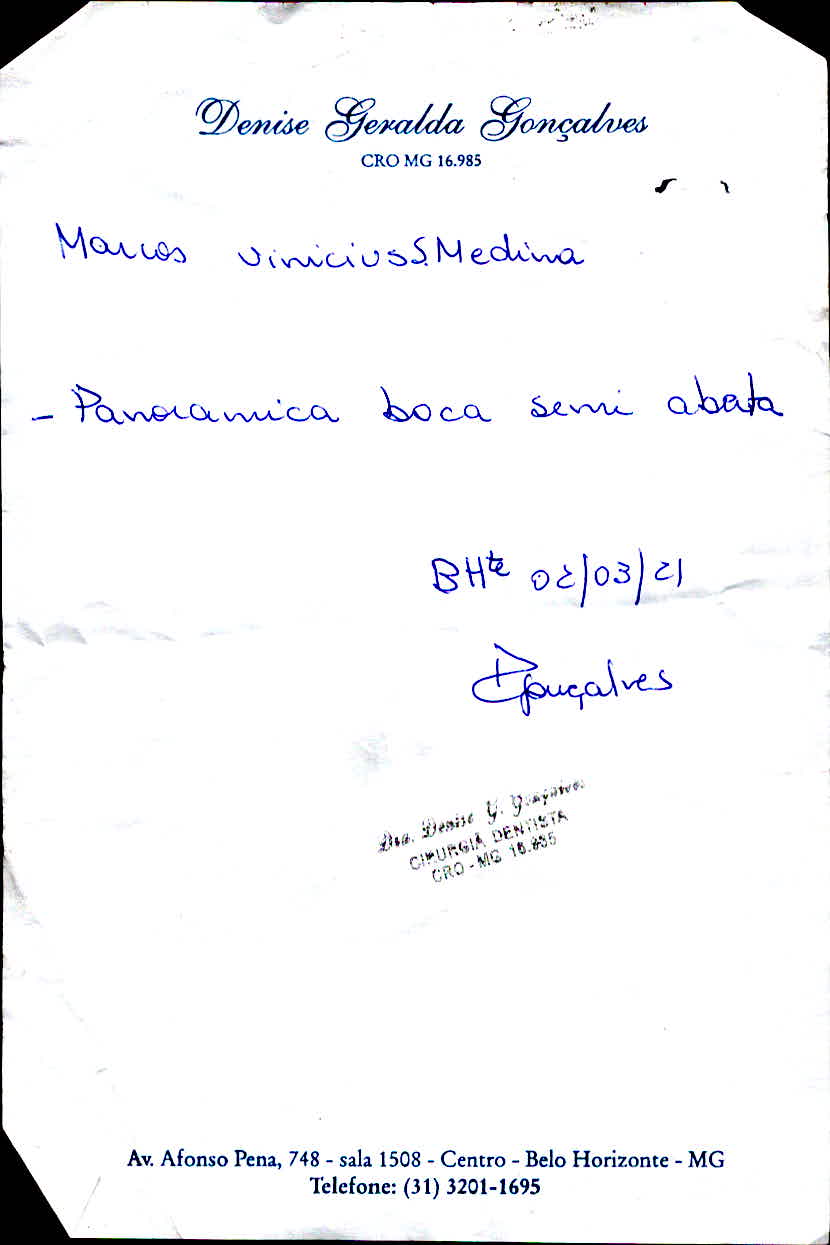 Denise Geralda Gonçalves
CRO MG 16.985
Marcos Vinicius S. Medina
- Panoramica boca semi aberta
BHte 02/03/21
DGonçalves
Dra. Denise G. Gonçalves
CIRURGIÃ DENTISTA
CRO - MG 16.985
Av. Afonso Pena, 748 - sala 1508 - Centro - Belo Horizonte - MG
Telefone: (31) 3201-1695